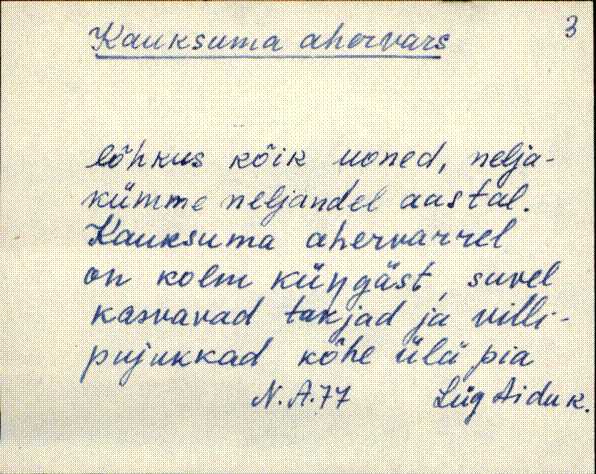 3
Kauksuma ahervars
lõhkus kõik uoned, nelja-
kümme neljandel aastal.
Kauksuma ahervarrel
on kolm küngäst, suvel
kasvavad takjad ja villi-
pujukkad kõhe üla pia
N.A.77 Lüg Aidu k.